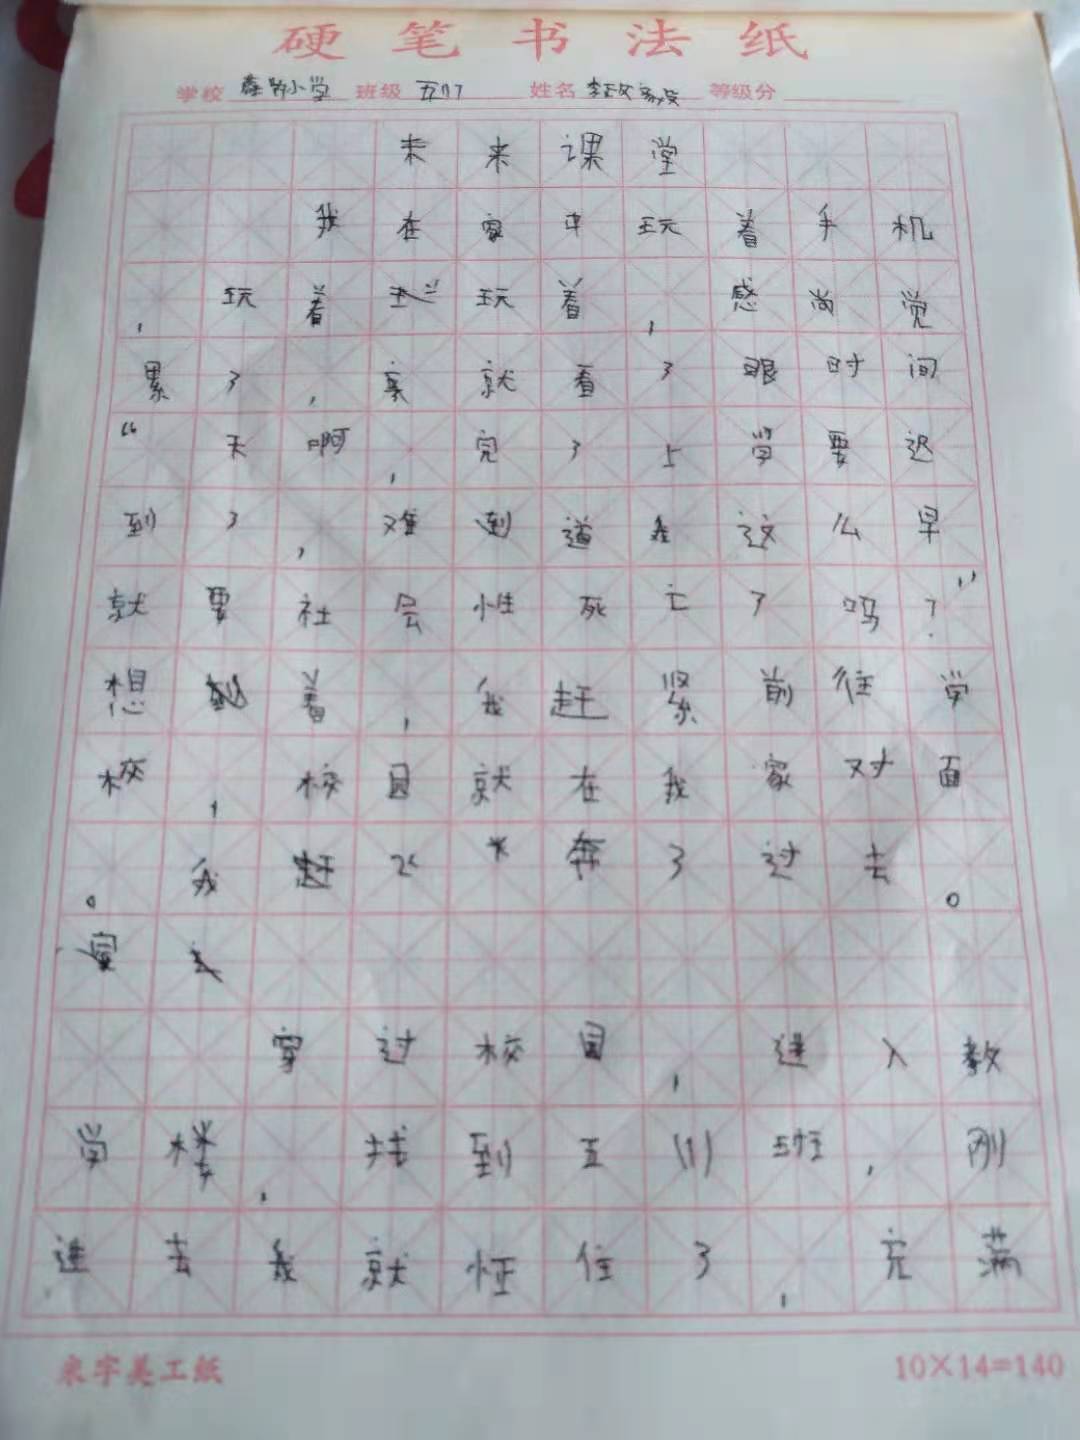 硬笔书法纸
学校 小学 班级 五(1) 姓名 等级分
未来课堂
我在家中玩着手机
，玩着玩着，感尚觉
累了，就看了眼时间
“天啊，完了上学要迟
到了，难到道我这么早
就要社会性死亡了吗？”
想着，我赶紧前往学
校，校园就在我家对面
。我飞奔了过去。
穿过校园，进入教
学楼，找到五(1)班，刚
进去我就怔住了，充满
宋字美工纸 10×14=140